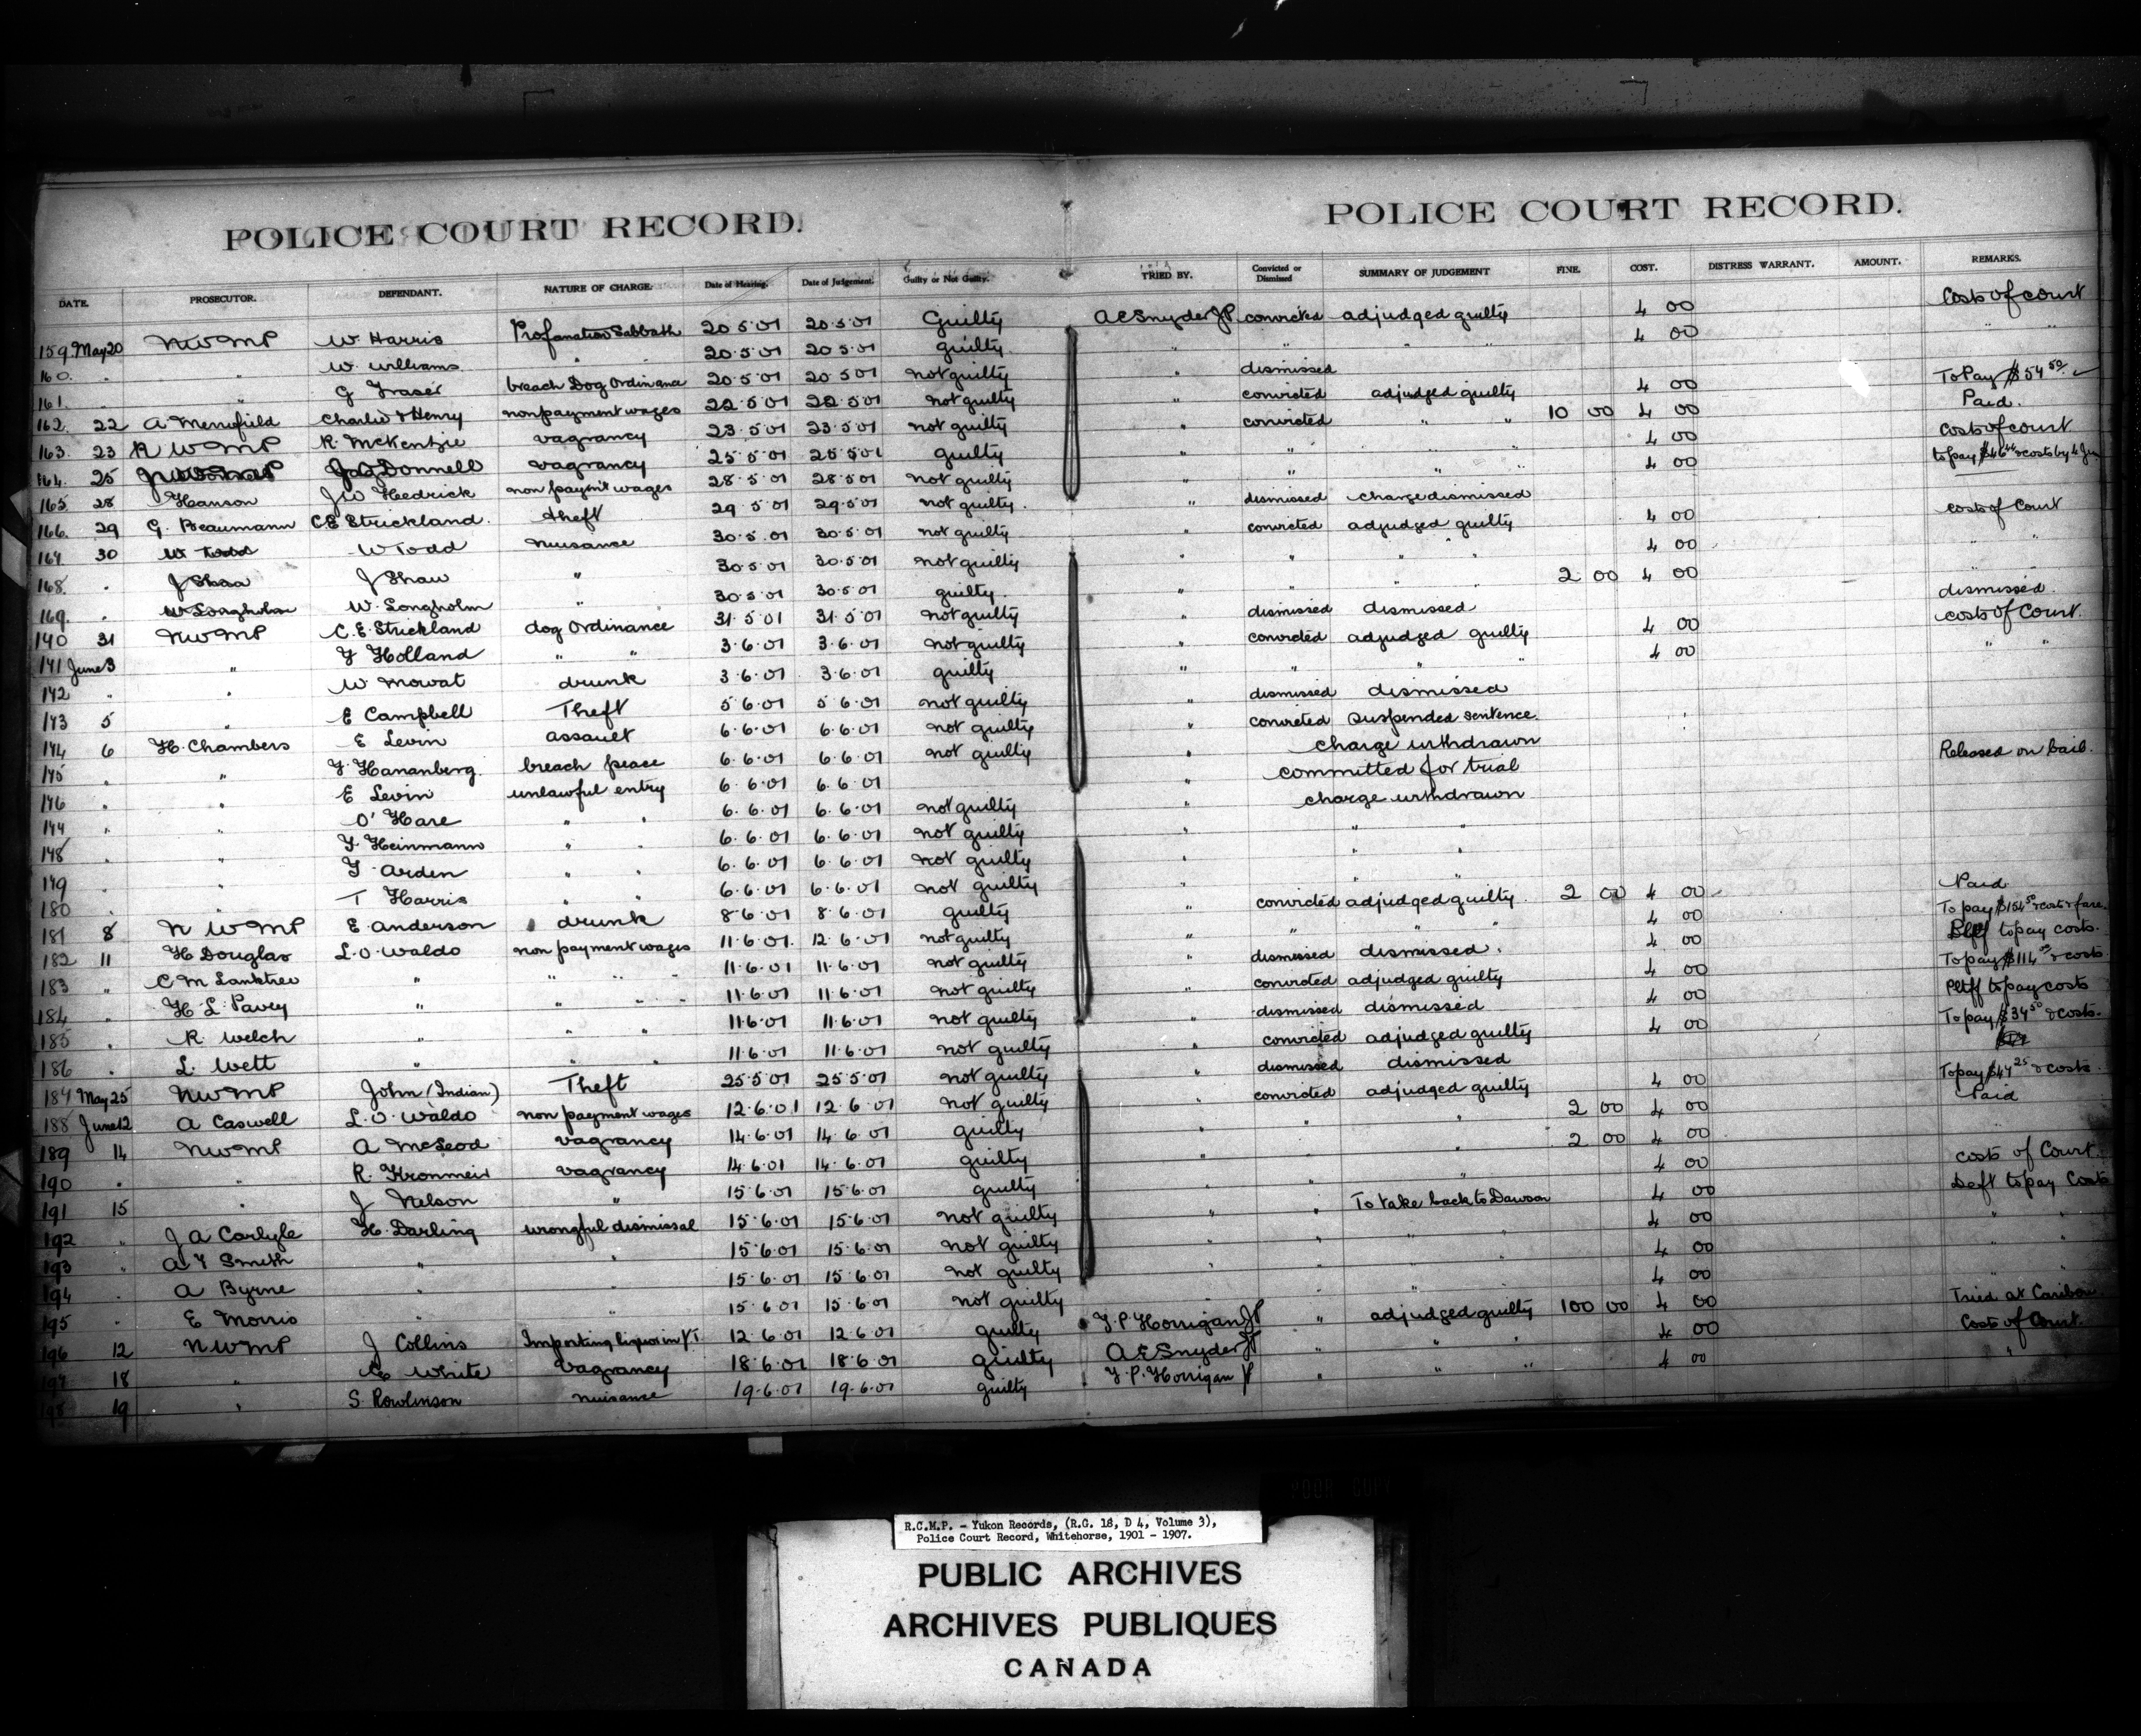 POLICE COURT RECORD. POLICE COURT RECORD.
DATE. PROSECUTOR. DEFENDANT. NATURE OF CHARGE. Date of Hearing. Date of Judgement. Guilty or Not Guilty. TRIED BY. Convicted or Dismissed SUMMARY OF JUDGEMENT FINE. COST. DISTRESS WARRANT. AMOUNT. REMARKS.
159 May 20 NWMP W. Harris Profanation Sabbath 20·5·01 20·5·01 Guilty A E Snyder JP convicted adjudged guilty 4 00 Costs of court
160 " " W. Williams " 20·5·01 20 5·01 guilty " " " " 4 00 " "
161 " " G Fraser breach Dog Ordinance 20·5·01 20 5 01 not guilty " dismissed
162 22 A Merryfield Charlie & Henry non payment wages 22·5·01 22·5·01 not guilty " convicted adjudged guilty 4 00 To Pay $54 50
163 23 NWMP R. McKenzie vagrancy 23·5·01 23·5·01 not guilty " convicted " " 10 00 4 00 Paid.
164 25 Donnell vagrancy 25·5·01 25·5·01 guilty " " " " 4 00 Costs of court
165 28 Hanson J W Hedrick non paym't wages 28·5·01 28·5·01 not guilty " " " " 4 00 to pay & costs by 4
166 29 G. Beaumann C E Strickland. theft 29·5·01 29·5·01 not guilty. " dismissed charge dismissed
167 30 W Todd W Todd nuisance 30·5·01 30·5·01 not guilty convicted adjudged guilty 4 00 Costs of Court
168 " J Shaw J Shaw " 30·5·01 30·5·01 not guilty " " " " 4 00 " "
169 " W Longholm W. Longholm " 30·5·01 30·5·01 guilty. " " " " 2 00 4 00
170 31 NWMP C. E. Strickland dog Ordinance 31·5·01 31·5·01 not guilty " dismissed dismissed dismissed.
171 June 3 " F Holland " " 3·6·01 3·6·01 not guilty " convicted adjudged guilty 4 00 costs of Court.
172 " " W Mowat drunk 3·6·01 3·6·01 guilty " " " " 4 00 " "
173 5 " E Campbell Theft 5·6·01 5·6·01 not guilty dismissed dismissed
174 6 H. Chambers E Levin assault 6·6·01 6·6·01 not guilty " convicted suspended sentence.
175 " " F Hananberg. breach peace 6·6·01 6·6·01 not guilty " charge withdrawn
176 " " E Levin unlawful entry 6·6·01 6·6·01 " committed for trial Released on bail.
177 " " O'Hare " " 6·6·01 6·6·01 not guilty " charge withdrawn
178 " " F. Heinmann " " 6·6·01 6·6·01 not guilty " " "
179 " " F. Arden " " 6·6·01 6·6·01 not guilty " " "
180 " " T Harris " " 6·6·01 6·6·01 not guilty " " "
181 8 NWMP E Anderson drunk 8·6·01 8·6·01 guilty convicted adjudged guilty. 2 00 4 00 Paid
182 11 H Douglas L. O. Waldo non payment wages 11·6·01 12·6·01 not guilty " " " " 4 00 To pay $154 50 & costs & fare
183 " C M Lanktree " " " " 11·6·01 11·6·01 not guilty " dismissed dismissed. 4 00 to pay costs.
184 " H. L. Pavey " " " " 11·6·01 11·6·01 not guilty convicted adjudged guilty 4 00 To pay $114 & costs
185 " R. Welch " " " 11·6·01 11·6·01 not guilty " dismissed dismissed 4 00 Pltff to pay costs
186 " L. Wett " " " 11·6·01 11·6·01 not guilty " convicted adjudged guilty 4 00 To pay $34 50 & costs.
187 May 25 NWMP John (Indian) Theft 25·5·01 25·5·01 not guilty " dismissed dismissed
188 June 12 A Caswell L. O. Waldo non payment wages 12·6·01 12·6·01 not guilty convicted adjudged guilty 4 00 To pay $47 25 & costs.
189 14 NWMP A McLeod vagrancy 14·6·01 14·6·01 guilty " " " 2 00 4 00 Paid
190 " " R. Kronmeir vagrancy 14·6·01 14·6·01 guilty " " " 2 00 4 00
191 15 " J Nelson " 15·6·01 15·6·01 guilty " " " 4 00 costs of Court
192 " J A Carlyle H. Darling wrongful dismissal 15·6·01 15·6·01 not guilty " " To take back to Dawson 4 00 Deft to pay Costs
193 " A Y Smith " " 15·6·01 15·6·01 not guilty " " " 4 00 " "
194 " A Byrne " " 15·6·01 15·6·01 not guilty " " " 4 00 " "
195 " E Morris " " 15·6·01 15·6·01 not guilty " " " 4 00 " "
196 12 NWMP J Collins Importing liquor in Y.T. 12·6·01 12·6·01 guilty F. P. Horrigan JP " adjudged guilty 100 00 4 00 Tried at Caribou
197 18 " White Vagrancy 18·6·01 18·6·01 guilty A E Snyder JP " " " 4 00 Costs of Court.
198 19 " S. Rowlinson nuisance 19·6·01 19·6·01 guilty F. P. Horrigan JP " " " 4 00 "
R.C.M.P. - Yukon Records, (R.G. 18, D 4, Volume 3),
Police Court Record, Whitehorse, 1901 - 1907.
PUBLIC ARCHIVES
ARCHIVES PUBLIQUES
CANADA